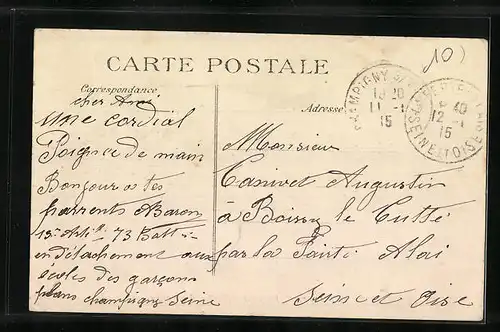 10)
CARTE POSTALE
Correspondance
Adresse
CHAMPIGNY
18 20
11 -1
15
40
12 -1
15
SEINE ET OISE
cher Ami
une cordial
Poignée de main
Bonjour a tes
parrents Baron
13e Arti 73 Batt
en détachement aux
écoles des garçons
plans champigny Seine
Monsieur
Canivet Augustin
à Boissy le Cutté
par la Ferté Alai
Seine et Oise